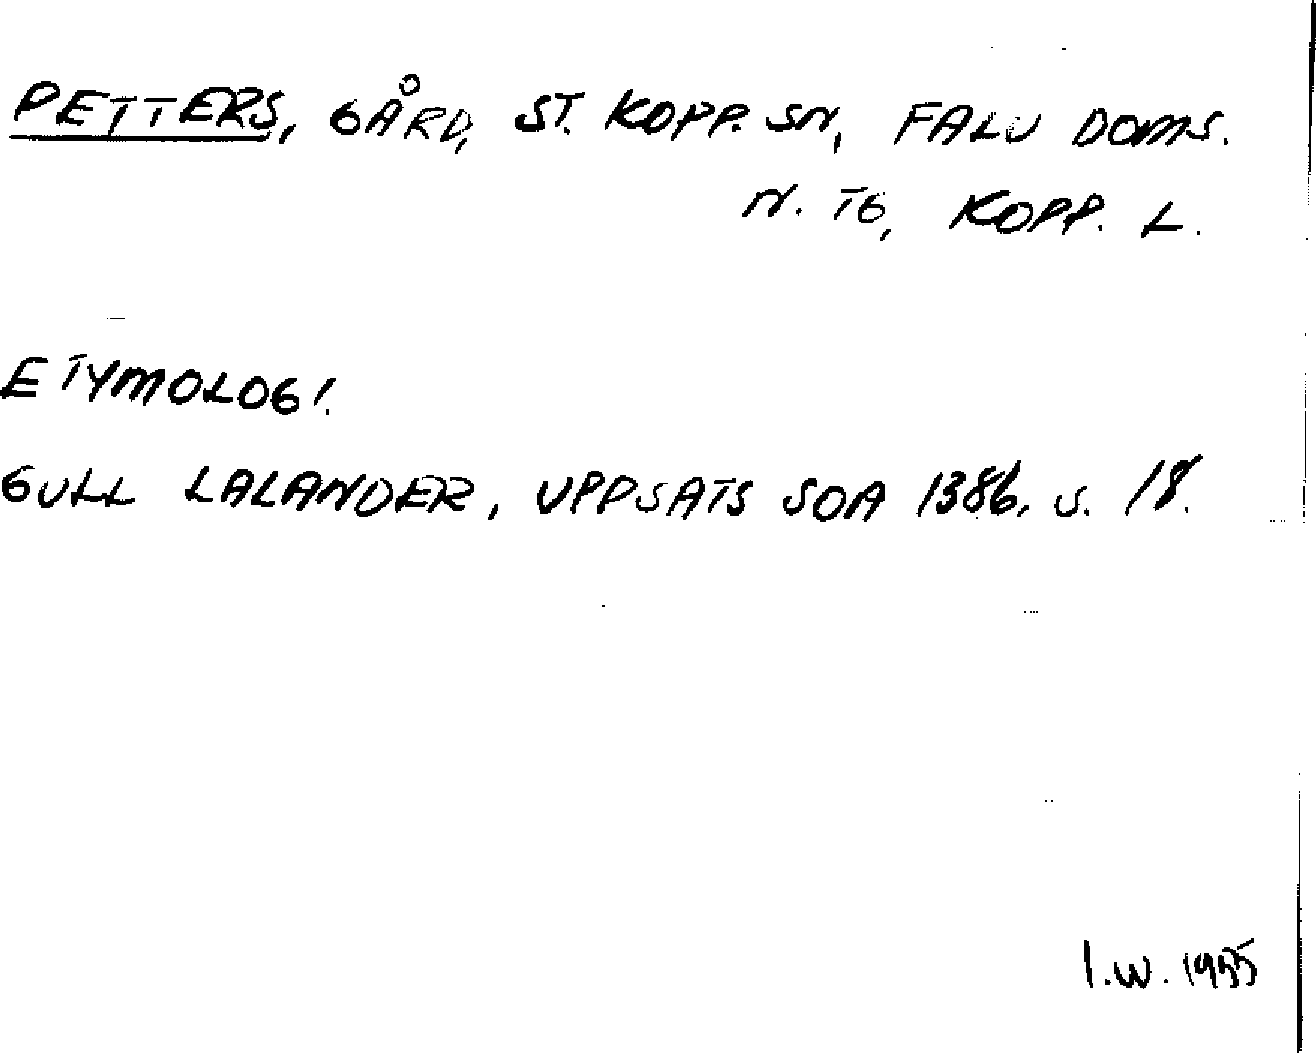 PETTERS, GÅRD, ST. KOPP. SN, FALU DOMS.
N. TG, KOPP. L.
ETYMOLOGI.
GULL LALANDER, UPPSATS SOA 1386. S. 18.
I.W. 1955